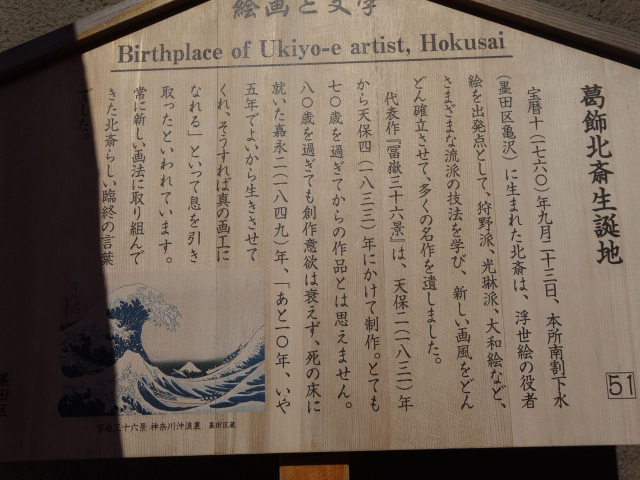 絵画と文学
Birthplace of Ukiyo-e artist, Hokusai
葛飾北斎生誕地
51
宝暦十(一七六〇)年九月二十三日、本所南割下水
(墨田区亀沢)に生まれた北斎は、浮世絵の役者
絵を出発点として、狩野派、光琳派、大和絵など、
さまざまな流派の技法を学び、新しい画風をどん
どん確立させて、多くの名作を遺しました。
代表作『冨嶽三十六景』は、天保二(一八三一)年
から天保四(一八三三)年にかけて制作。とても
七〇歳を過ぎてからの作品とは思えません。
八〇歳を過ぎても創作意欲は衰えず、死の床に
就いた嘉永二(一八四九)年、「あと一〇年、いや
五年でよいから生きさせて
くれ、そうすれば真の画工に
なれる」といって息を引き
取ったといわれています。
常に新しい画法に取り組んで
きた北斎らしい臨終の言葉
でした。
冨嶽三十六景 神奈川沖浪裏 墨田区蔵
墨田区